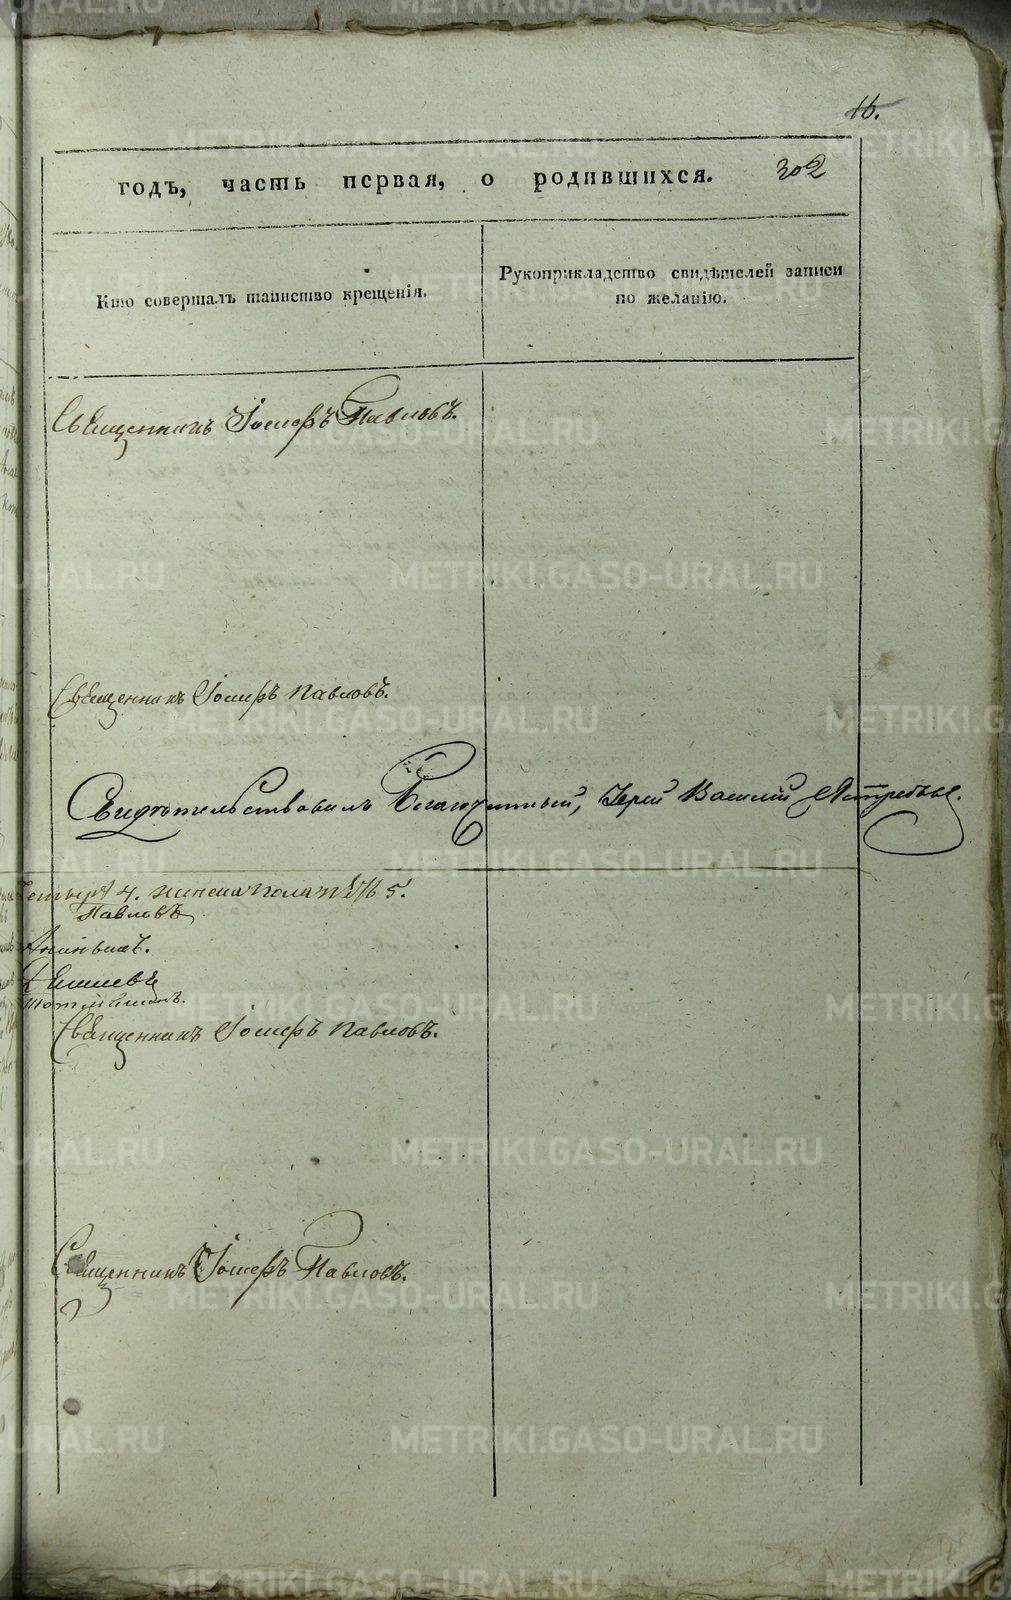 16.
годъ, часть первая, о родившихся. 302
Кто совершалъ таинство крещенія.
Рукоприкладство свидѣтелей записи
по желанію.
Священникъ Іосифъ Павловъ.
Священникъ Іосифъ Павловъ.
Свидѣтельствовалъ Благочинный, Іерей Василій Ястребовъ.
четыре 4. женска пола пять 5.
Павловъ
Священникъ Іосифъ Павловъ.
Священникъ Іосифъ Павловъ.
METRIKI.GASO-URAL.RU